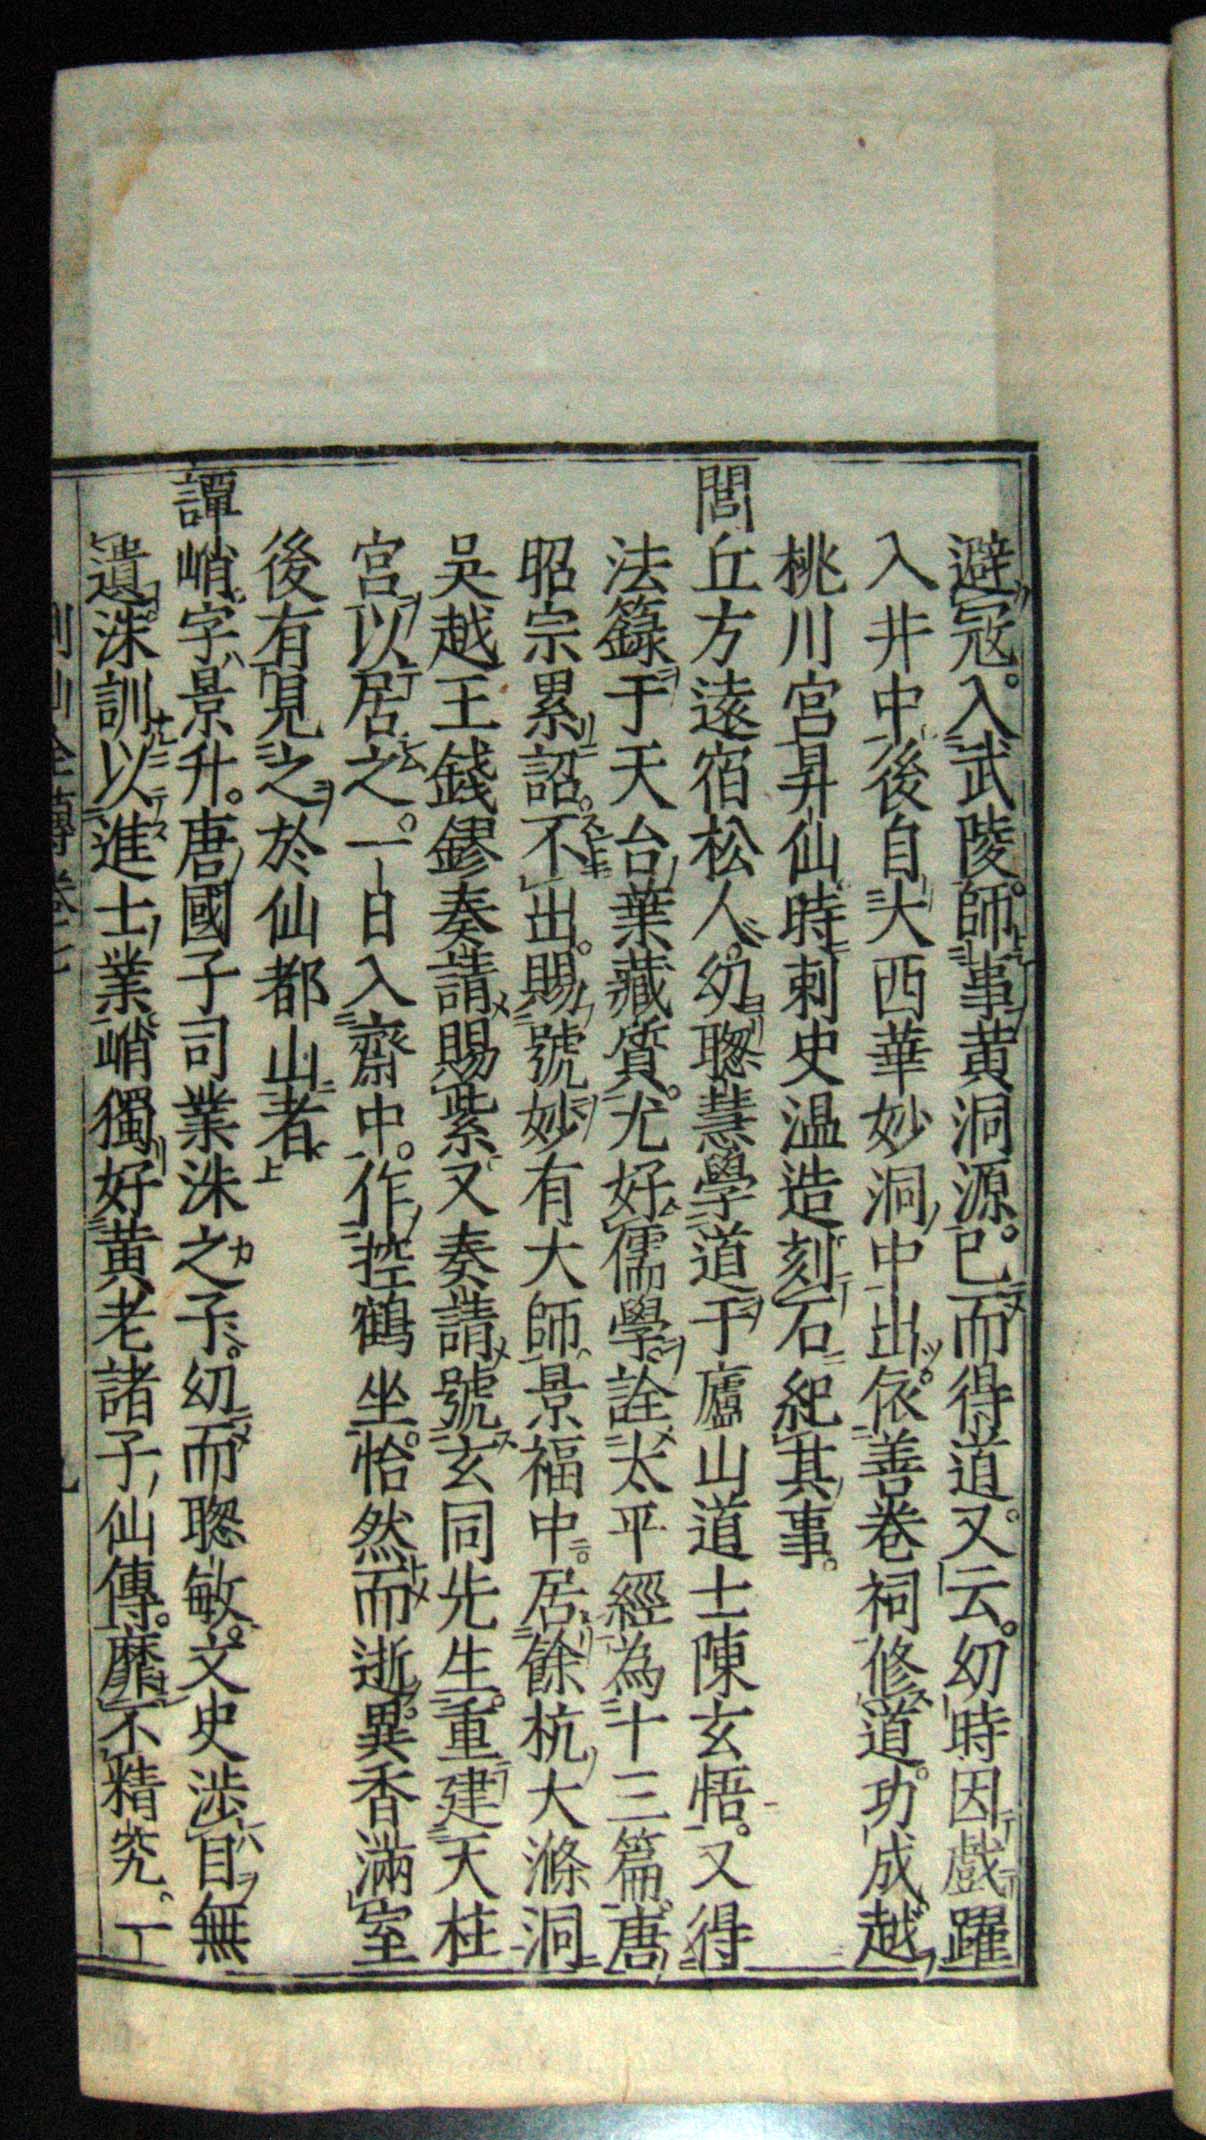 避冦。入武陵。師事黄洞源。已而得道。又云。幼時因戲躍
入井中後自大西華妙洞中出。依善卷祠修道。功成越
桃川宮昇仙時刺史温造刻石紀其事。
閭丘方遠宿松人。幼聰慧學道于廬山道士陳玄悟。又得
法籙于天台葉藏質。尤好儒學。詮太平經為十三篇。唐
昭宗累詔。不出。賜號妙有大師景福中。居餘杭大滌洞
吳越王錢鏐奏請賜紫又奏請號玄同先生。重建天柱
宮以居之。一日入齋中。作控鶴坐。恰然而逝。異香滿室
後有見之於仙都山者
譚峭。字景升。唐國子司業洙之子。幼而聰敏。文史渉目無
遺。洙訓以進士業峭獨好黄老諸子仙傳。靡不精究。一